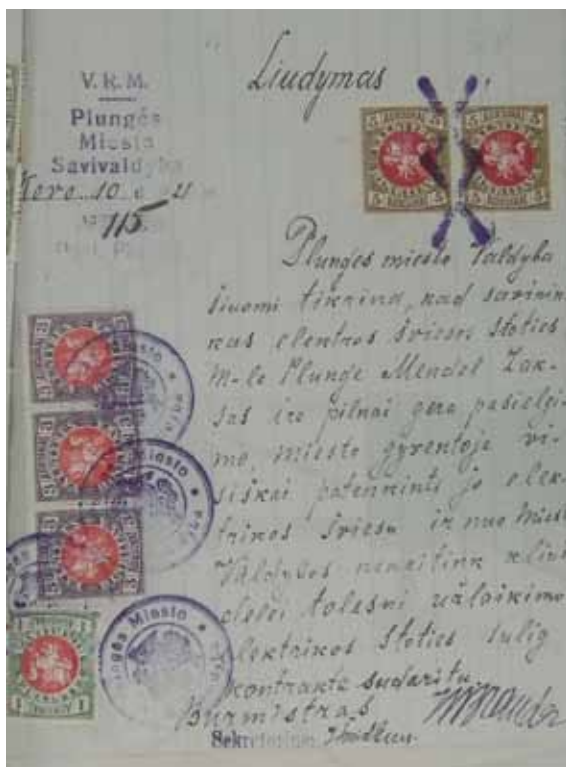 V. R. M.
Plungės
Miesto
Savivaldyba
Kovo 10 d.
115
Liudymas
5 AUKSINAI 5
5 AUKSINAI 5
Plungės miesto Valdyba
šiuomi tikrina, kad savinin-
kas elektros šviesos stoties
m-le Plunge Mendel Zak-
sas ira pilnai gero pasielgi-
mo, miesto gyventoje vi-
siškai patenkinti jo elek-
trikos šviesa ir nuo Miesto
Valdybos
delei tolesni užlaikimo
elektrikos stoties sulig
kontrakte sudarita
Burmistras
Sekretorius
Plungės Miesto
1 1